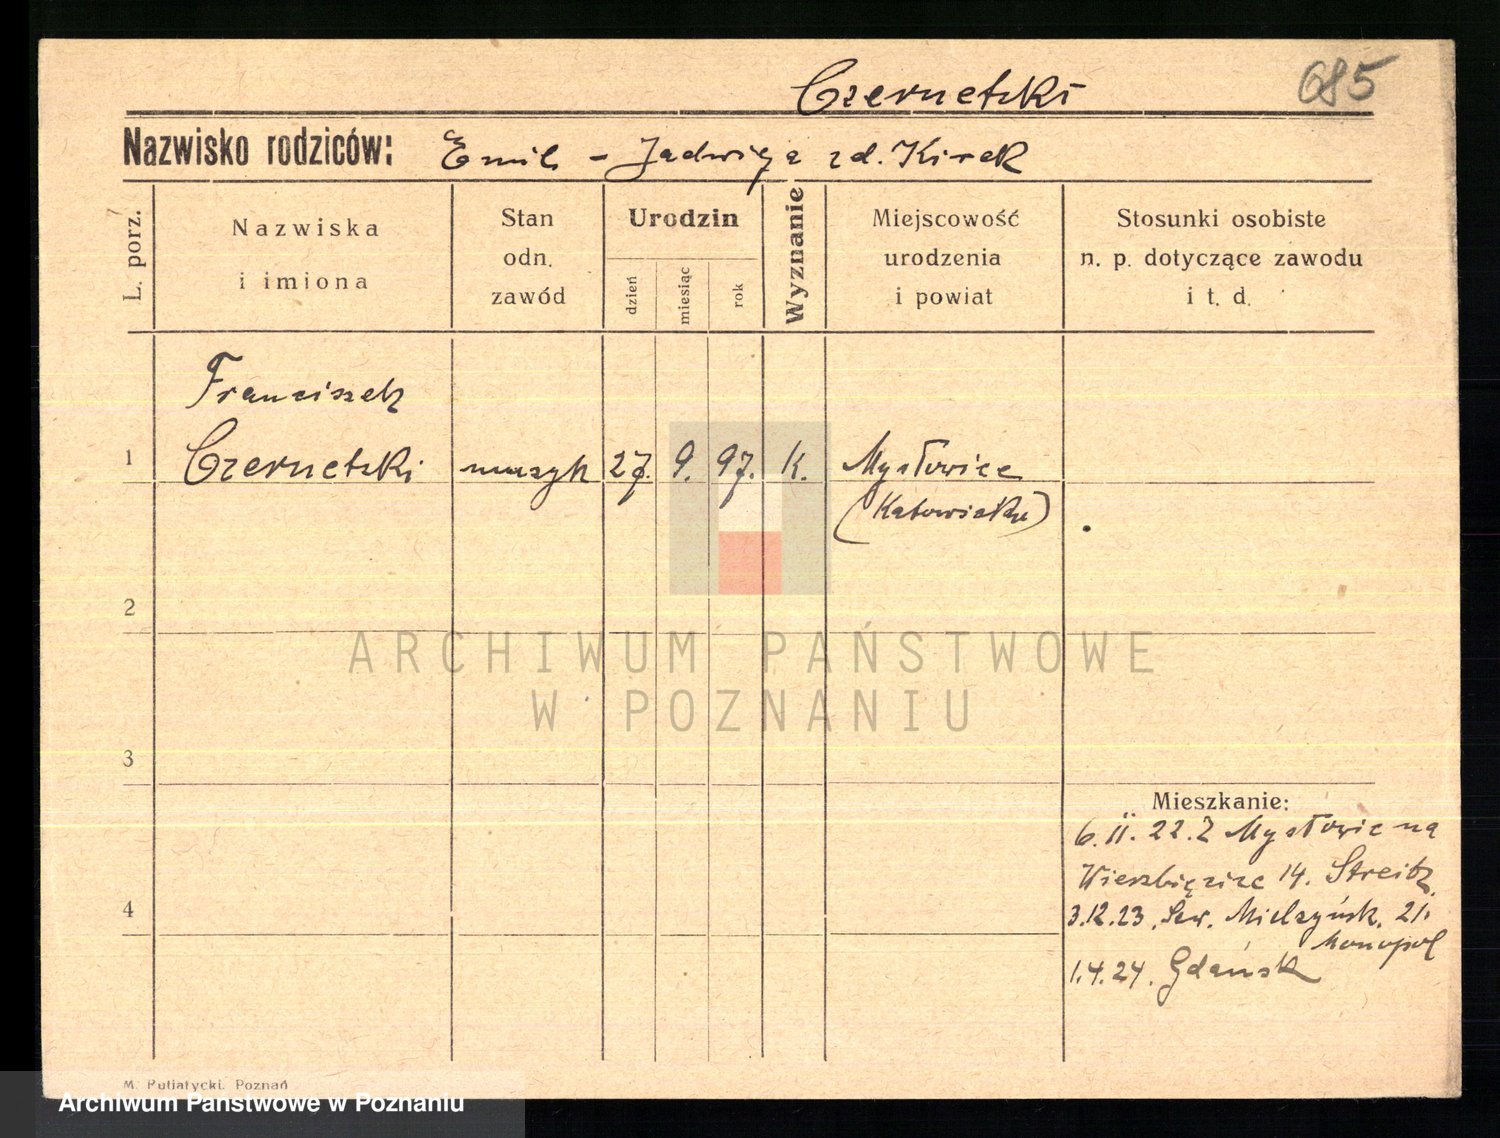 Czernetzki 685
Nazwisko rodziców: Emil - Jadwiga zd. Kirek
L. porz.
Nazwiska
i imiona
Stan
odn.
zawód
Urodzin
dzień
miesiąc
rok
Wyznanie
Miejscowość
urodzenia
i powiat
Stosunki osobiste
n. p. dotyczące zawodu
i t. d.
Franciszek
1 Czernetzki muzyk 27. 9. 97. K. Mysłowice
(Katowickie)
2
ARCHIWUM PAŃSTWOWE
W POZNANIU
3
Mieszkanie:
6. II. 22. Z Mysłowic na
Wierzbięcice 14. Streitz
4
3.12.23. Sew. Mielzyńsk. 21.
Monopol
1.4.24. Gdańsk
M. Putiatycki, Poznań
Archiwum Państwowe w Poznaniu